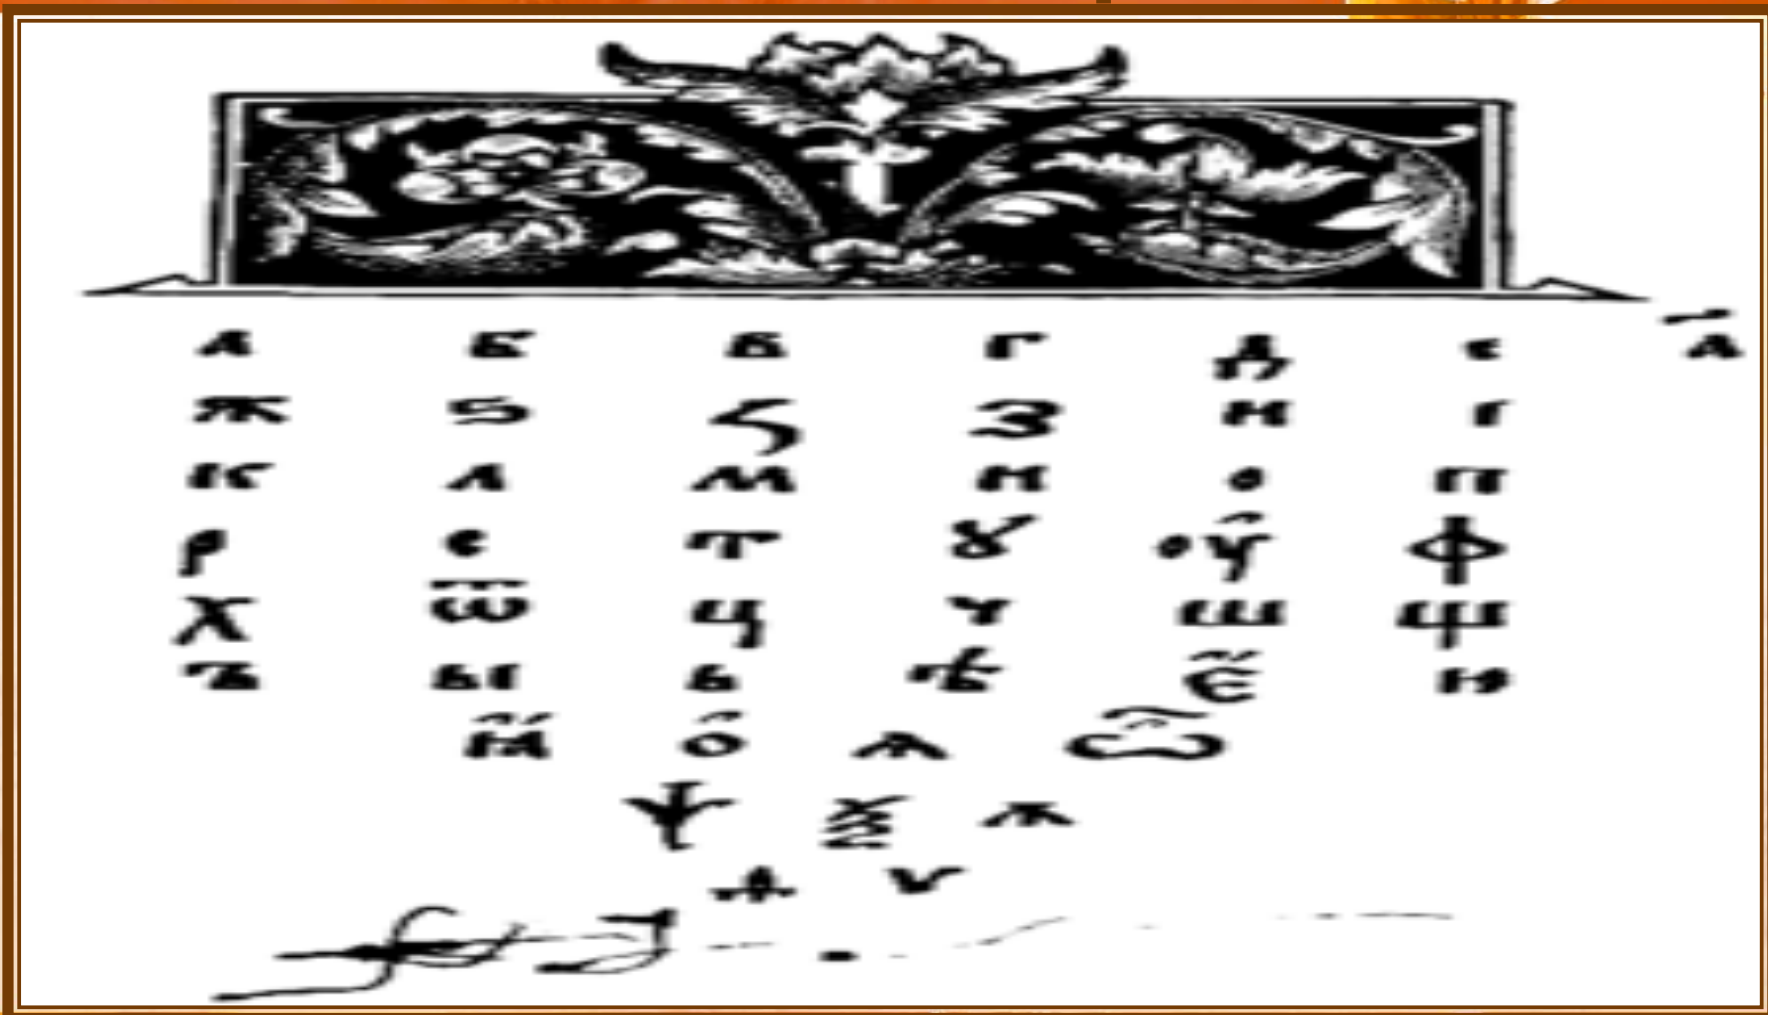 а б в г д є а҃
ж ѕ ꙁ з и і
к л м н о п
р с т ꙋ оу̑ ф
х ѿ ц ч ш щ
ъ ы ь ѣ є̃ ю
о̑ ѧ ѽ
ѱ ѯ ѧ
ѳ ѵ